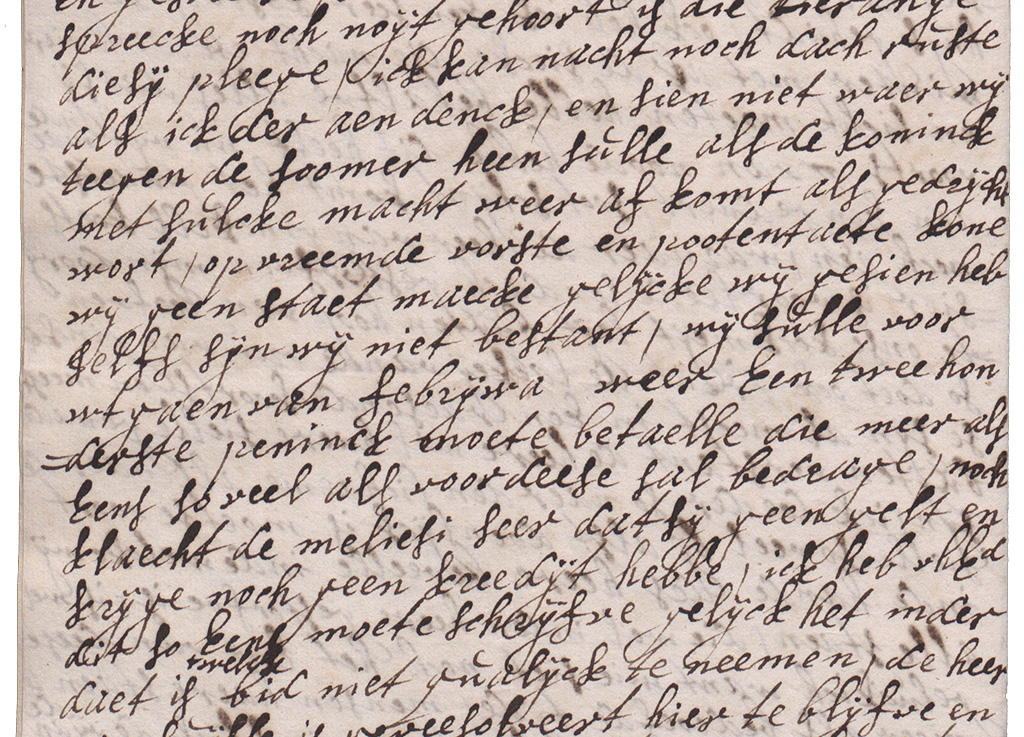 spreecke noch noÿt gehoort is die tierange
diesÿ pleege / ick kan nacht noch dach ruste
als ick der aen denck / en sien niet waer wÿ
teegen de soomer heen sulle als de koninck
met sulcke macht weer af komt als gedrÿcht
wort / op vreemde vorste en pootentaete kone
wÿ geen staet maecke gelÿcke wÿ gesien heb
selfs sÿn wÿ niet bestant / wÿ sulle voor
wtgaen van febrÿwa weer een twee hon
=derste peninck moete betaelle die meer als
eens so veel als voor deese sal bedrage / noch
klaecht de meliesi seer dat sÿ geen gelt en
krÿge noch geen kreedÿt hebbe / ick heb uhEd
dit so eens moete schrÿfve gelÿck het inder
daet is twelck bid niet qualÿck te neemen / de heer
is gereesolveert hier te blÿfve en